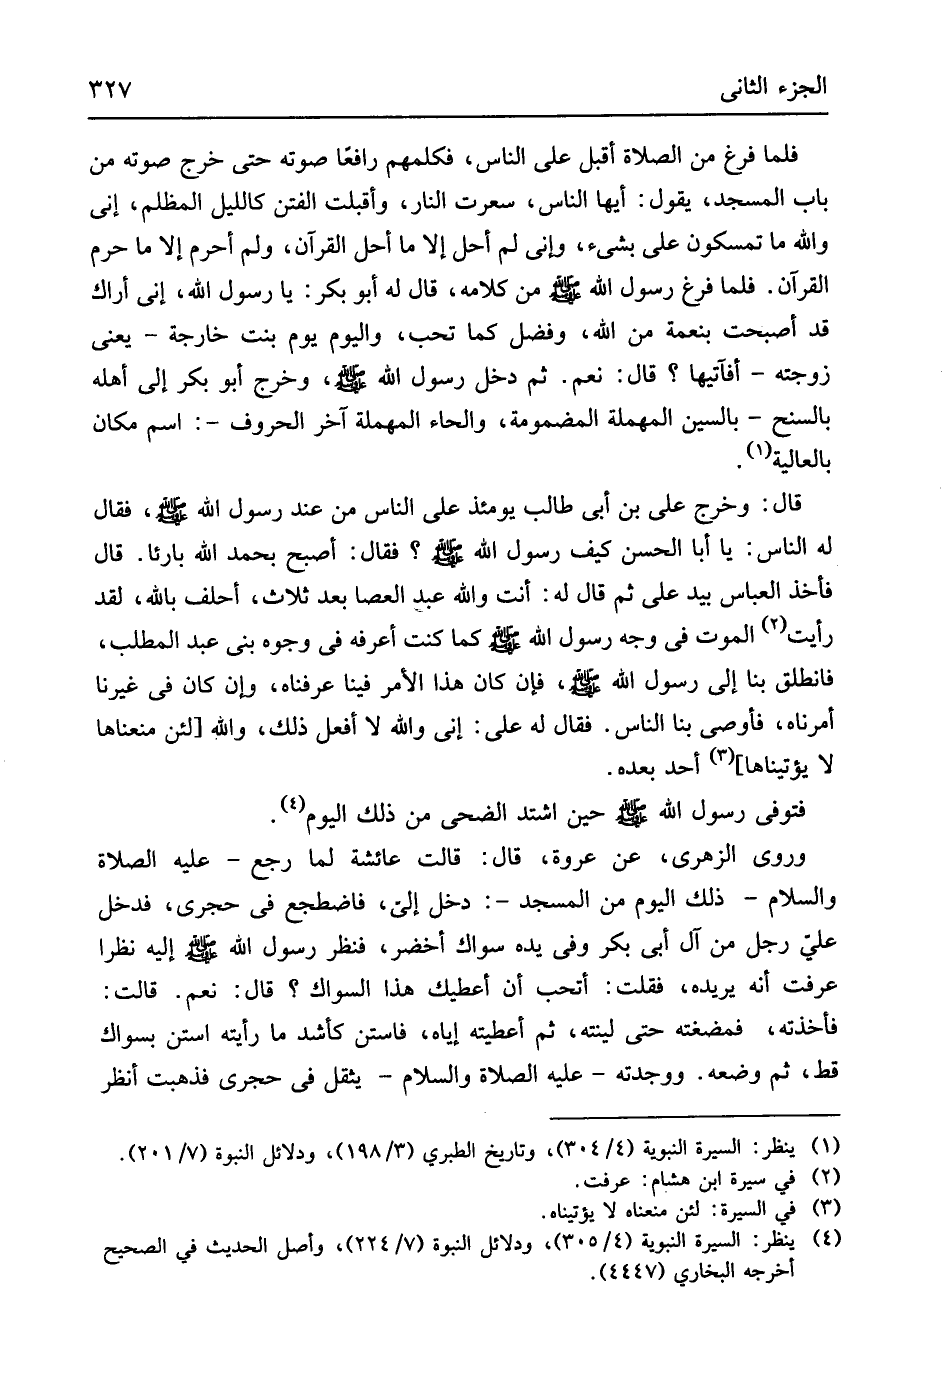 الجزء الثانى ٣٢٧
فلما فرغ من الصلاة أقبل على الناس، فكلمهم رافعًا صوته حتى خرج صوته من
باب المسجد، يقول: أيها الناس، سعرت النار، وأقبلت الفتن كالليل المظلم، إنى
والله ما تمسكون على بشىء، وإنى لم أحل إلا ما أحل القرآن، ولم أحرم إلا ما حرم
القرآن. فلما فرغ رسول الله ﷺ من كلامه، قال له أبو بكر: يا رسول الله، إنى أراك
قد أصبحت بنعمة من الله، وفضل كما تحب، واليوم يوم بنت خارجة - يعنى
زوجته - أفآتيها ؟ قال: نعم. ثم دخل رسول الله ﷺ، وخرج أبو بكر إلى أهله
بالسنح - بالسين المهملة المضمومة، والحاء المهملة آخر الحروف -: اسم مكان
بالعالية(١).
قال: وخرج على بن أبى طالب يومئذ على الناس من عند رسول الله ﷺ، فقال
له الناس: يا أبا الحسن كيف رسول الله ﷺ ؟ فقال: أصبح بحمد الله بارئا. قال
فأخذ العباس بيد على ثم قال له: أنت والله عبد العصا بعد ثلاث، أحلف بالله، لقد
رأيت(٢) الموت فى وجه رسول الله ﷺ كما كنت أعرفه فى وجوه بنى عبد المطلب،
فانطلق بنا إلى رسول الله ﷺ، فإن كان هذا الأمر فينا عرفناه، وإن كان فى غيرنا
أمرناه، فأوصى بنا الناس. فقال له على: إنى والله لا أفعل ذلك، والله [لئن منعناها
لا يؤتيناها](٣) أحد بعده.
فتوفى رسول الله ﷺ حين اشتد الضحى من ذلك اليوم(٤).
وروى الزهرى، عن عروة، قال: قالت عائشة لما رجع - عليه الصلاة
والسلام - ذلك اليوم من المسجد -: دخل إلىّ، فاضطجع فى حجرى، فدخل
علىّ رجل من آل أبى بكر وفى يده سواك أخضر، فنظر رسول الله ﷺ إليه نظرا
عرفت أنه يريده، فقلت: أتحب أن أعطيك هذا السواك ؟ قال: نعم. قالت:
فأخذته، فمضغته حتى لينته، ثم أعطيته إياه، فاستن كأشد ما رأيته استن بسواك
قط، ثم وضعه. ووجدته - عليه الصلاة والسلام - يثقل فى حجرى فذهبت أنظر
(١) ينظر: السيرة النبوية (٣٠٤/٤)، وتاريخ الطبري (١٩٨/٣)، ودلائل النبوة (٢٠١/٧).
(٢) في سيرة ابن هشام: عرفت.
(٣) في السيرة: لئن منعناه لا يؤتيناه.
(٤) ينظر: السيرة النبوية (٣٠٥/٤)، ودلائل النبوة (٢٢٤/٧)، وأصل الحديث في الصحيح
أخرجه البخاري (٤٤٤٧).